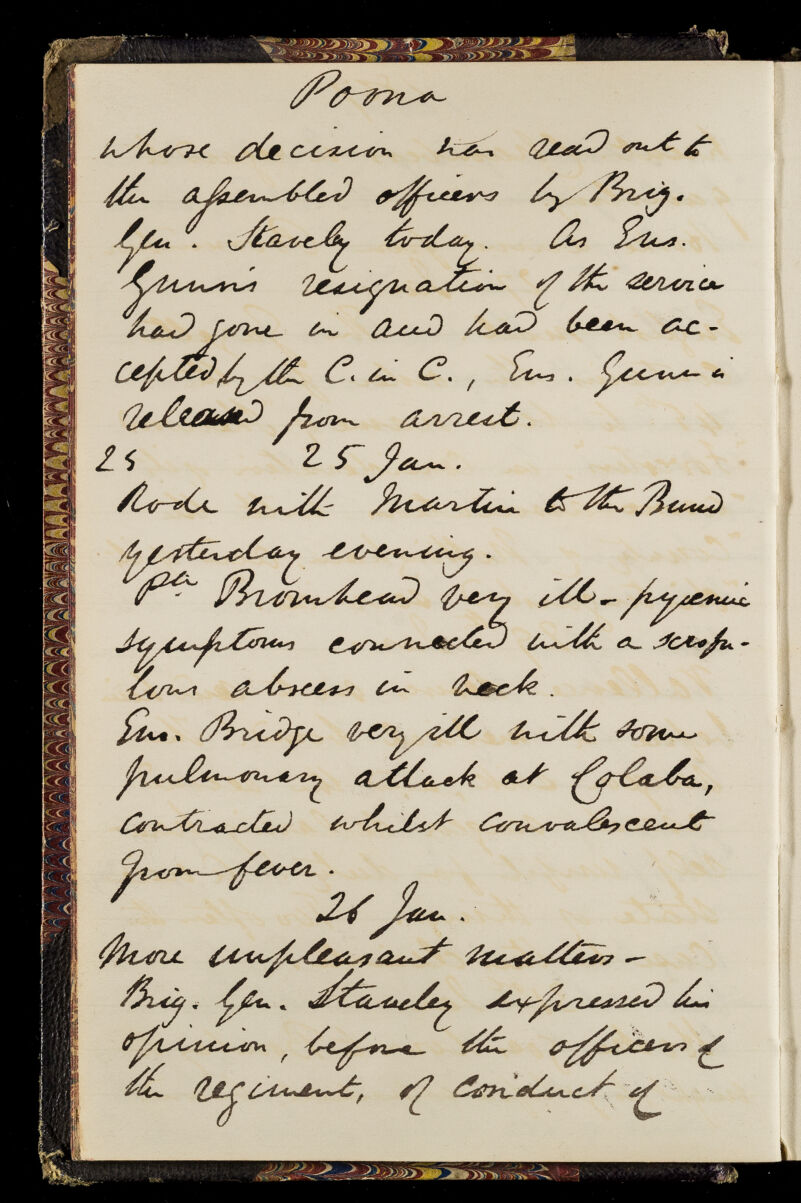 Poona
whose decision was read out to
the assembled officers by Brig.
Gen. Staveley today. As Ens.
Gunn's resignation of the service
had gone in and had been ac-
cepted by the C. in C., Ens. Gunn is
released from arrest.
25 25 Jan.
Rode with Martin to the Bund
yesterday evening.
Bromhead very ill - pyæmic
symptoms connected with a scrofu-
lous abscess in neck.
Ens. Bridge very ill with some
pulmonary attack at Colaba,
contracted whilst convalescent
from fever.
26 Jan.
More unpleasant matters -
Brig. Gen. Staveley expressed his
opinion, before the officers of
the regiment, of conduct of